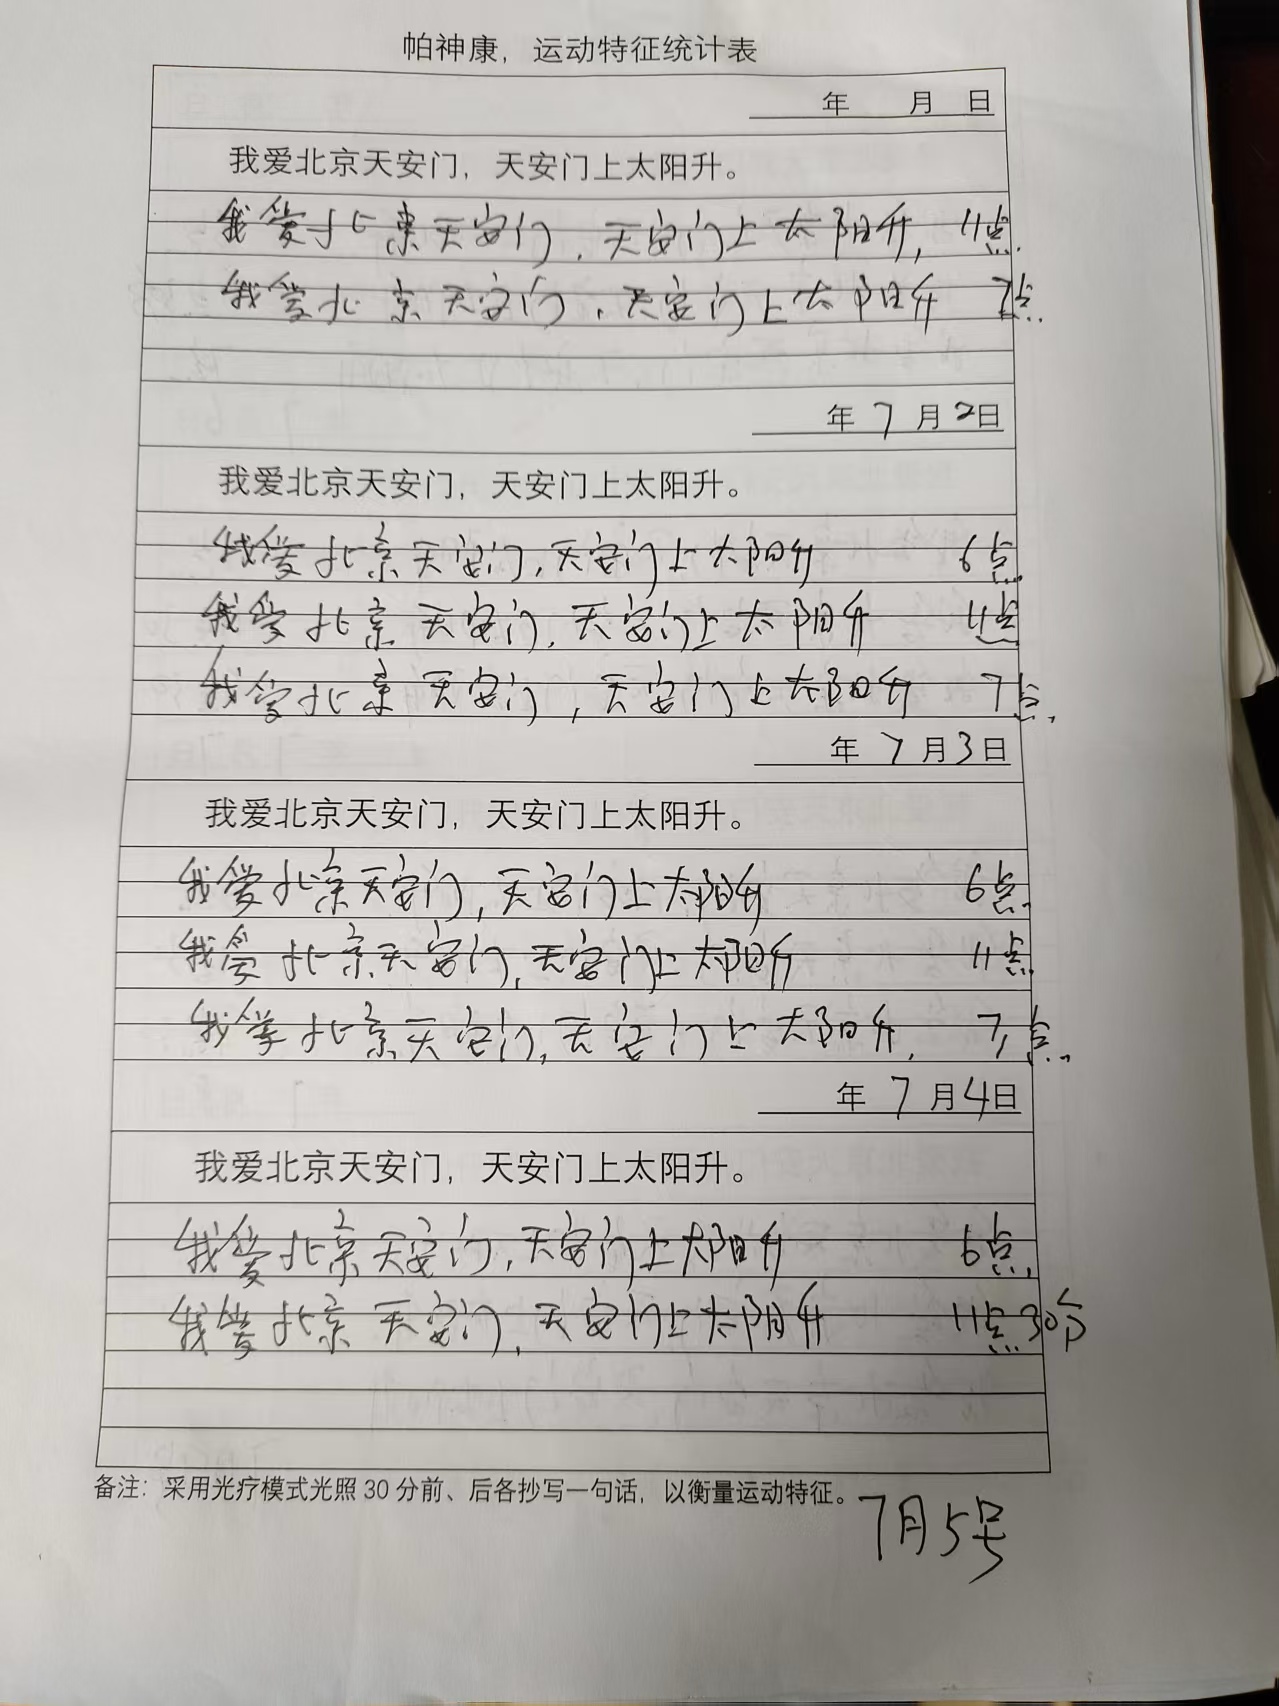 帕神康，运动特征统计表
年 月 日
我爱北京天安门，天安门上太阳升。
我爱北京天安门，天安门上太阳升，11点.
我爱北京天安门，天安门上太阳升 7点.
年 7 月 2 日
我爱北京天安门，天安门上太阳升。
我爱北京天安门，天安门上太阳升 6点
我爱北京天安门，天安门上太阳升 11点
我爱北京天安门，天安门上太阳升 7点.
年 7 月 3 日
我爱北京天安门，天安门上太阳升。
我爱北京天安门，天安门上太阳升 6点
我爱北京天安门，天安门上太阳升 11点
我爱北京天安门，天安门上太阳升. 7点.
年 7 月 4 日
我爱北京天安门，天安门上太阳升。
我爱北京天安门，天安门上太阳升 6点.
我爱北京天安门，天安门上太阳升 11点30分
备注：采用光疗模式光照 30 分前、后各抄写一句话，以衡量运动特征。
7月5号